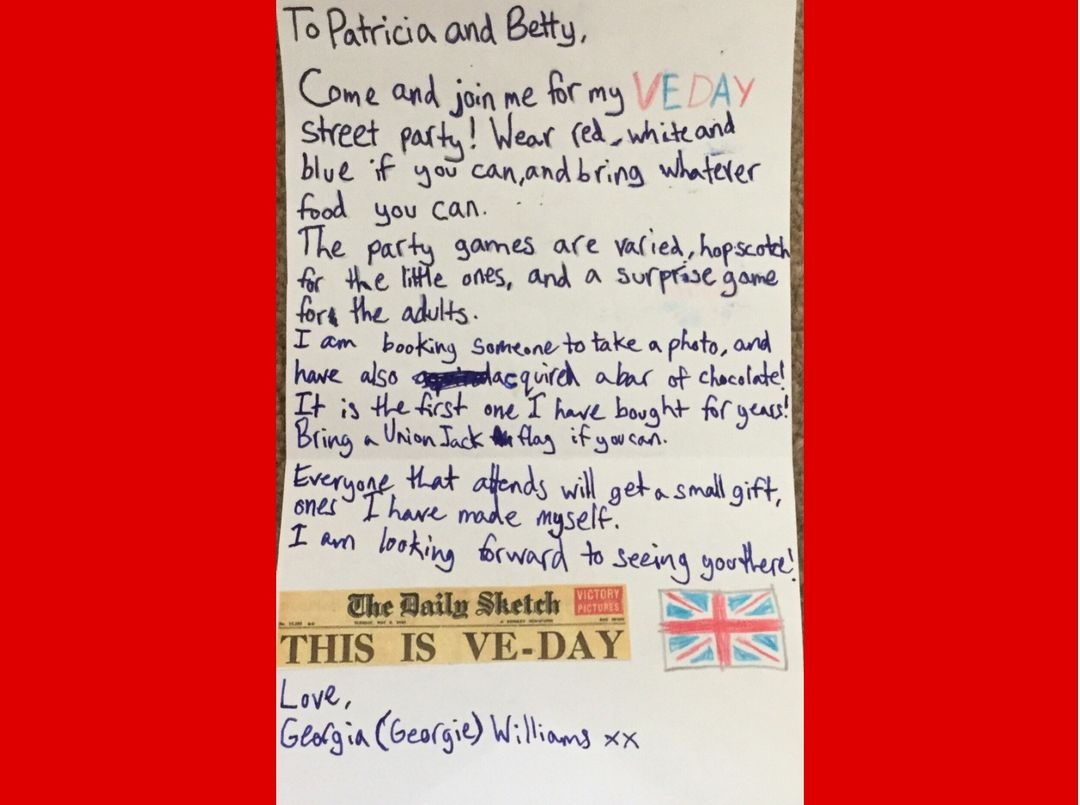 To Patricia and Betty,
Come and join me for my VE DAY
street party! Wear red, white and
blue if you can, and bring whatever
food you can.
The party games are varied, hopscotch
for the little ones, and a surprise game
for the adults.
I am booking someone to take a photo, and
have also acquired a bar of chocolate!
It is the first one I have bought for years!
Bring a Union Jack flag if you can.
Everyone that attends will get a small gift,
ones I have made myself.
I am looking forward to seeing you there!
The Daily Sketch
VICTORY
PICTURES
THIS IS VE-DAY
Love,
Georgia (Georgie) Williams xx